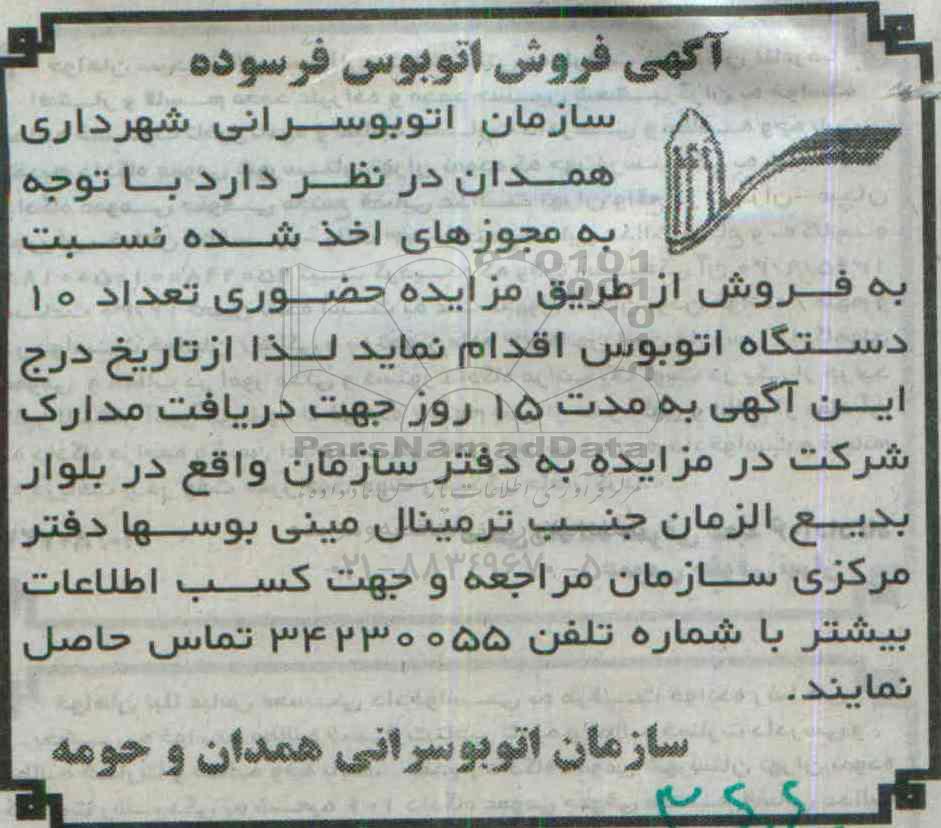 آگهی فروش اتوبوس فرسوده
سازمان اتوبوسرانی شهرداری
همدان در نظر دارد با توجه
به مجوزهای اخذ شده نسبت
به فروش از طریق مزایده حضوری تعداد ۱۰
دستگاه اتوبوس اقدام نماید لذا ازتاریخ درج
این آگهی به مدت ۱۵ روز جهت دریافت مدارک
شرکت در مزایده به دفتر سازمان واقع در بلوار
بدیع الزمان جنب ترمینال مینی بوسها دفتر
مرکزی سازمان مراجعه و جهت کسب اطلاعات
بیشتر با شماره تلفن ۳۴۲۳۰۰۵۵ تماس حاصل
نمایند.
سازمان اتوبوسرانی همدان و حومه
ParsNamadData
۰۲۱-۸۸۳۴۹۶۷۰-۵